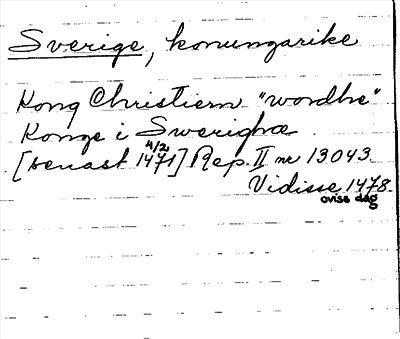 Sverige, konungarike
Kong Christiern "wordhe"
Konge i Swerighæ
4/2
[senast 1471] Rep. II nr 13043.
Vidisse 1478.
oviss dag